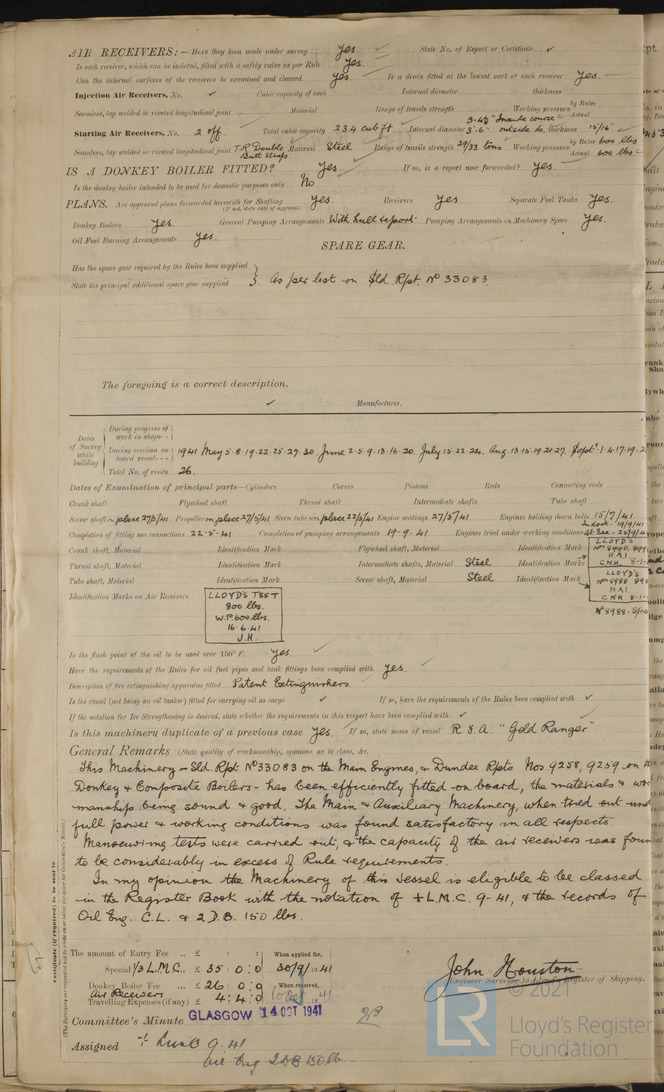 AIR RECEIVERS:— Have they been made under survey Yes State No. of Report or Certificate ✓
Is each receiver, which can be isolated, fitted with a safety valve as per Rule Yes.
Can the internal surfaces of the receivers be examined and cleaned yes. Is a drain fitted at the lowest part of each receiver Yes.
Injection Air Receivers, No. ✓ Cubic capacity of each Internal diameter thickness
Seamless, lap welded or riveted longitudinal joint Material Range of tensile strength Working pressure by Rules Actual
Starting Air Receivers, No. 2 off Total cubic capacity 234 cub ft. Internal diameter 3'-6" outside do. thickness 15/16"
Seamless, lap welded or riveted longitudinal joint T.R. Double Butt Straps Material Steel Range of tensile strength 29/33 tons Working pressure by Rules 600 lbs Actual 600 lbs
IS A DONKEY BOILER FITTED? Yes. If so, is a report now forwarded? Yes.
Is the donkey boiler intended to be used for domestic purposes only No
PLANS. Are approved plans forwarded herewith for Shafting Yes. Receivers Yes. Separate Fuel Tanks Yes.
(If not, state date of approval)
Donkey Boilers Yes. General Pumping Arrangements With hull report. Pumping Arrangements in Machinery Space Yes.
Oil Fuel Burning Arrangements Yes.
SPARE GEAR.
Has the spare gear required by the Rules been supplied
State the principal additional spare gear supplied } As per list on Sld Rpt. No 33083
The foregoing is a correct description,
✓ Manufacturer.
Dates of Survey while building
During progress of work in shops--
During erection on board vessel--- 1941 May 5.8.19.22.25.27.30. June 2.5.9.13.16.20. July 15.22.24. Aug. 13.15.19.21.27. Sept. 1.4.17.19.2
Total No. of visits 26.
Dates of Examination of principal parts—Cylinders Covers Pistons Rods Connecting rods
Crank shaft Flywheel shaft Thrust shaft Intermediate shafts Tube shaft
Screw shaft in place 27/5/41 Propeller in place 27/5/41 Stern tube in place 22/5/41 Engine seatings 27/5/41 Engines holding down bolts 15/7/41
Completion of fitting sea connections 22-5-41 Completion of pumping arrangements 19-9-41 Engines tried under working conditions In dock-19/9/41 At Sea-25/9/41
Crank shaft, Material Identification Mark Flywheel shaft, Material Identification Mark
LLOYD'S
H.A.1
C.N.H. 8-1-
Thrust shaft, Material Identification Mark Intermediate shafts, Material Steel Identification Marks
Tube shaft, Material Identification Mark Screw shaft, Material Steel Identification Mark
LLOYD'S
H.A.1.
C.N.H. 8-1-
Identification Marks on Air Receivers
LLOYD'S TEST
800 lbs.
W.P. 600 lbs.
16-6-41
J.H.
Is the flash point of the oil to be used over 150° F. Yes.
Have the requirements of the Rules for oil fuel pipes and tank fittings been complied with Yes.
Description of fire extinguishing apparatus fitted Patent Extinguishers.
Is the vessel (not being an oil tanker) fitted for carrying oil as cargo ✓ If so, have the requirements of the Rules been complied with ✓
If the notation for Ice Strengthening is desired, state whether the requirements in this respect have been complied with ✓
Is this machinery duplicate of a previous case Yes. If so, state name of vessel R.F.A. "Gold Ranger"
General Remarks (State quality of workmanship, opinions as to class, &c.
This Machinery - Sld. Rpt. No 33083 on the Main Engines, & Dundee Rpts Nos 9258, 9259 on
Donkey & Composite Boilers - has been efficiently fitted on board, the materials &
manship being sound & good. The Main & Auxiliary Machinery, when tried out
full power & working conditions was found satisfactory in all respects.
Manoeuvring tests were carried out, & the capacity of the air receivers was foun
to be considerably in excess of Rule requirements.
In my opinion the Machinery of this Vessel is eligible to be classed
in the Register Book with the notation of + L.M.C. 9-41, & the records of
Oil Eng. C.L. & 2 D.B. 150 lbs.
The amount of Entry Fee .. £ : : When applied for,
Special 1/3 L.M.C. .. £ 35 : 0 : 0 30/9/1941
Donkey Boiler Fee .. £ 26 : 0 : 0 When received,
Air Receivers
Travelling Expenses (if any) £ 4 : 4 : 0
John Houston
Engineer Surveyor to Lloyd's Register of Shipping.
Committee's Minute GLASGOW 14 OCT 1941
Assigned + LMC 9.41
Oil Eng 2DB 150 lb.
© 2021
Lloyd's Register
Foundation